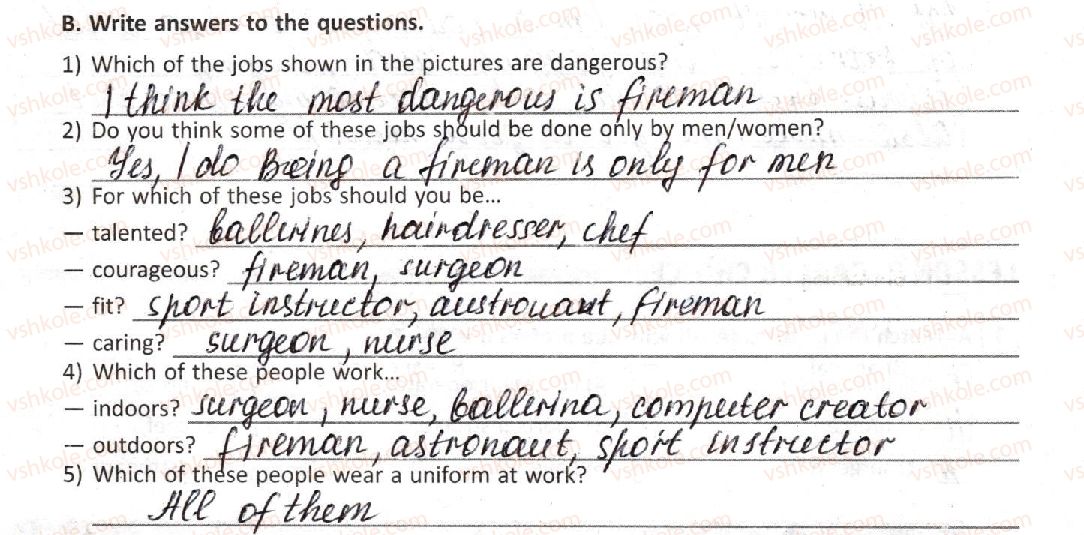 B. Write answers to the questions.
1) Which of the jobs shown in the pictures are dangerous?
I think the most dangerous is fireman
2) Do you think some of these jobs should be done only by men/women?
Yes, I do Being a fireman is only for men
3) For which of these jobs should you be...
— talented? ballerines, hairdresser, chef
— courageous? fireman, surgeon
— fit? sport instructor, austronaut, fireman
— caring? surgeon, nurse
4) Which of these people work...
— indoors? surgeon, nurse, ballerina, computer creator
— outdoors? fireman, astronaut, sport instructor
5) Which of these people wear a uniform at work?
All of them